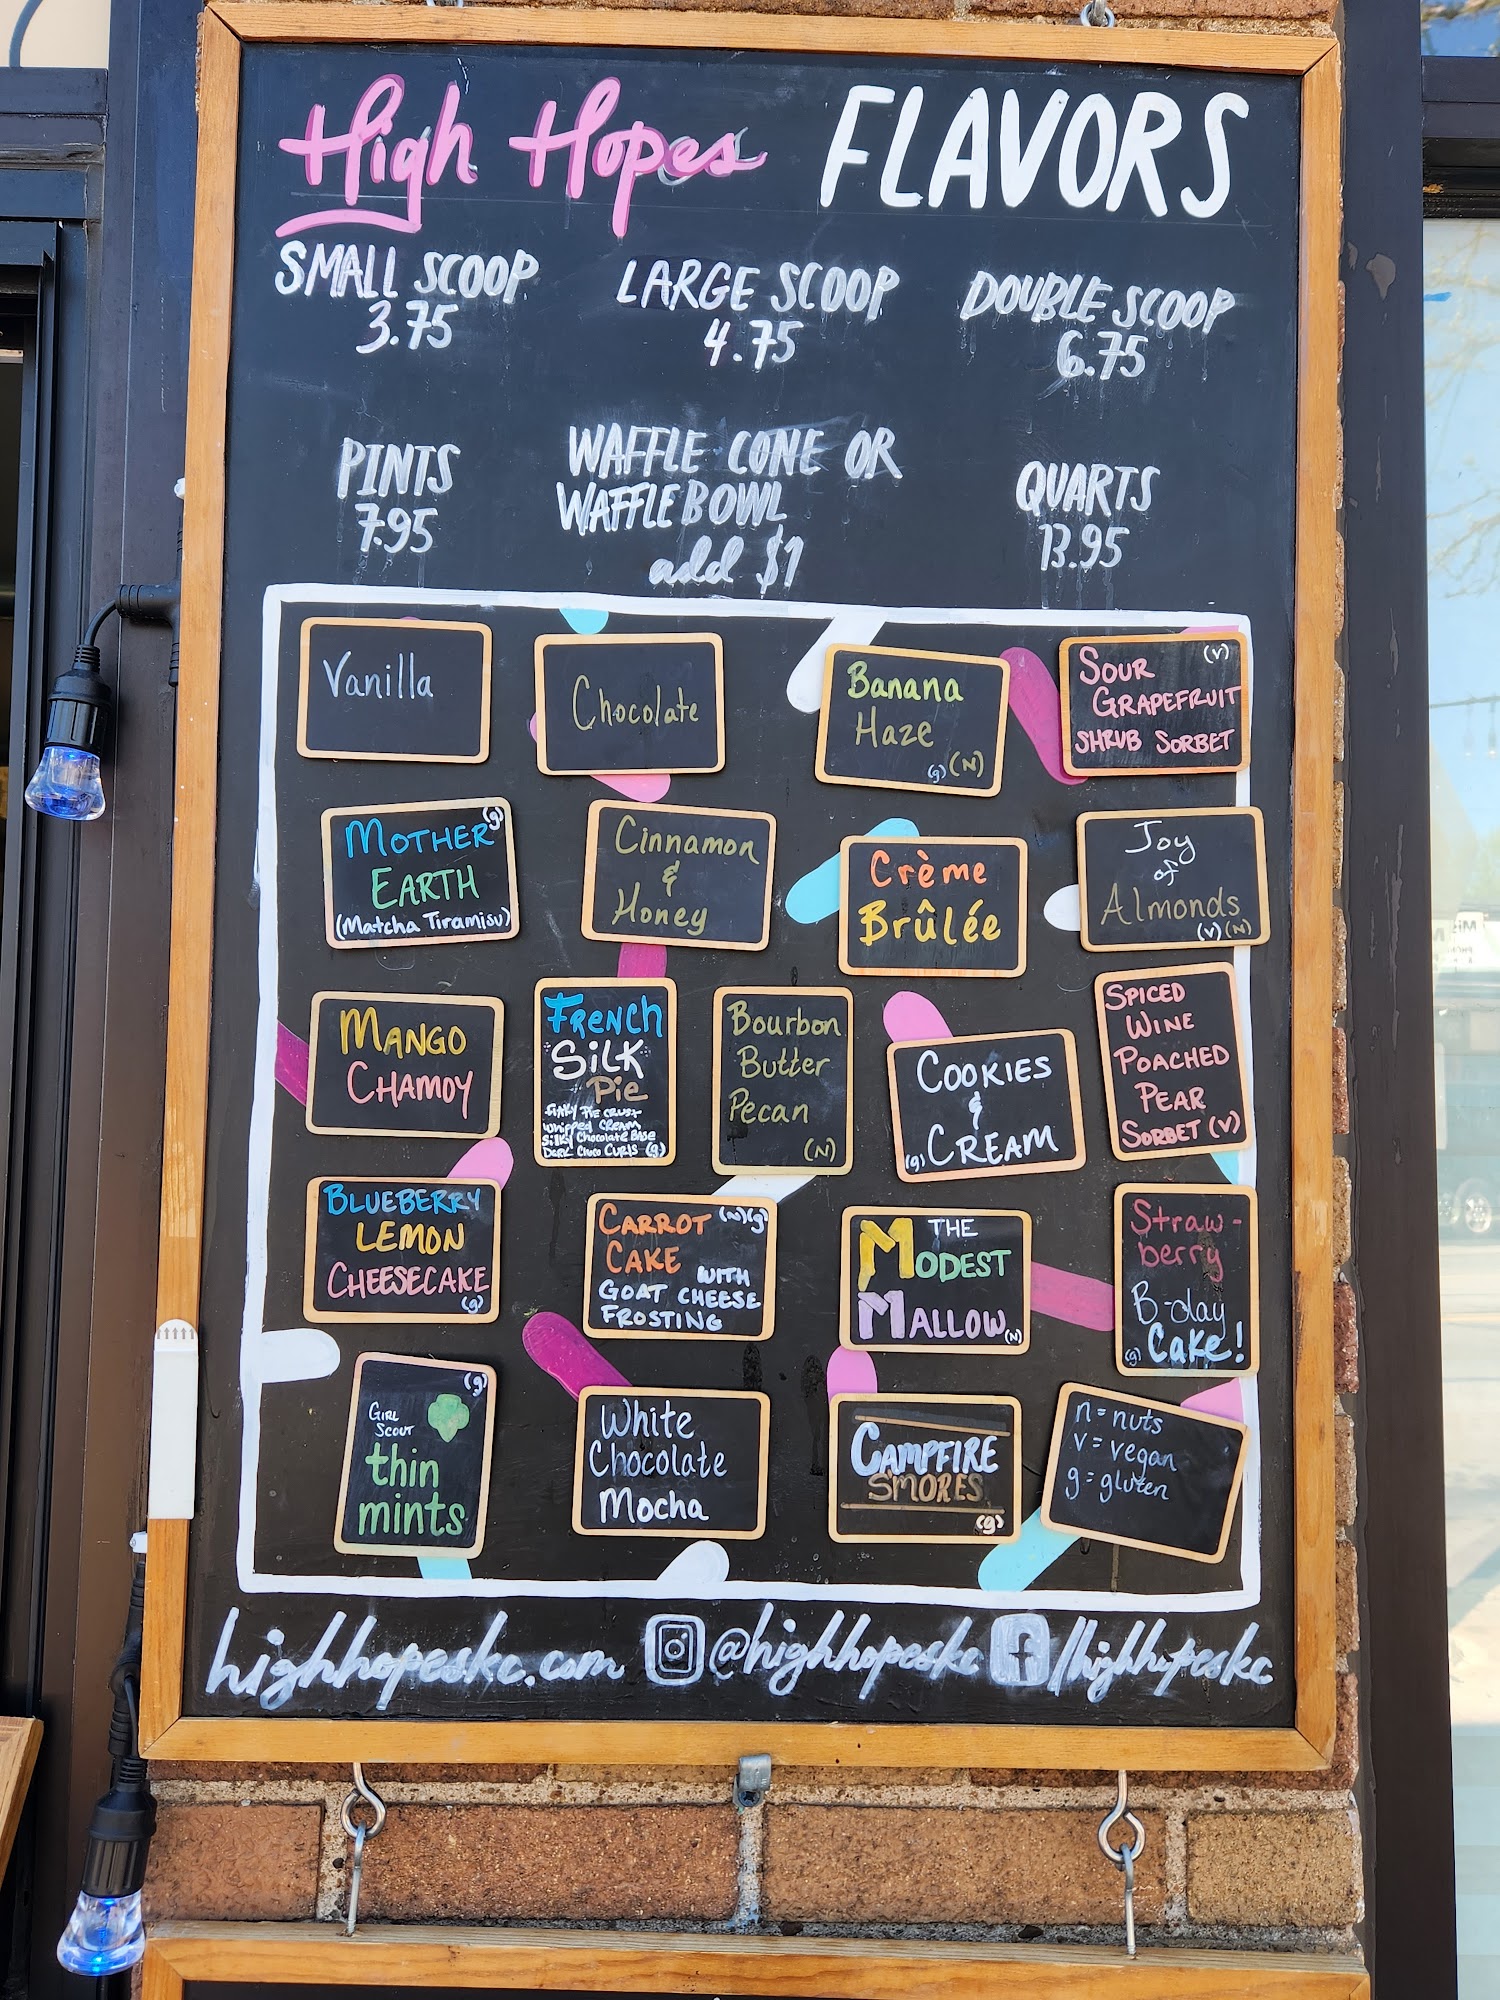 High Hopes FLAVORS
SMALL SCOOP
3.75
LARGE SCOOP
4.75
DOUBLE SCOOP
6.75
PINTS
7.95
WAFFLE CONE OR
WAFFLE BOWL
add $1
QUARTS
13.95
Vanilla
Chocolate
Banana
Haze
(g) (N)
SOUR (V)
GRAPEFRUIT
SHRUB SORBET
MOTHER (g)
EARTH
(Matcha Tiramisu)
Cinnamon
&
Honey
Crème
Brûlée
Joy
of
Almonds
(V) (N)
MANGO
CHAMOY
FRENCH
SILK
PIE
FLAKY PIE CRUST
Whipped CREAM
Silky Chocolate BASE
DARK Choco CURLS (g)
Bourbon
Butter
Pecan
(N)
COOKIES
&
(g) CREAM
SPICED
WINE
POACHED
PEAR
SORBET (V)
BLUEBERRY
LEMON
CHEESECAKE
(g)
CARROT (N)(g)
CAKE WITH
GOAT CHEESE
FROSTING
THE
MODEST
MALLOW (N)
Straw-
berry
B-day
(g) Cake!
(g)
GIRL
SCOUT
thin
mints
White
Chocolate
Mocha
CAMPFIRE
S'MORES
(g)
n = nuts
v = vegan
g = gluten
highhopeskc.com @highhopeskc f /highhopeskc